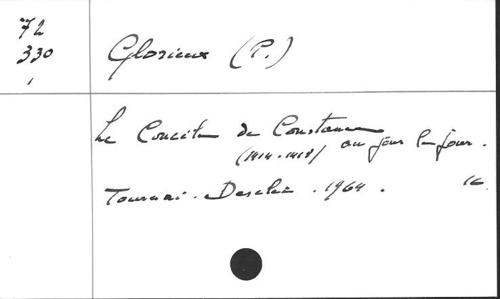 72
330
1
Glorieux (P.)
Le Concile de Constance
(1414-1418) au jour le jour.
Tournai. Desclée. 1964.